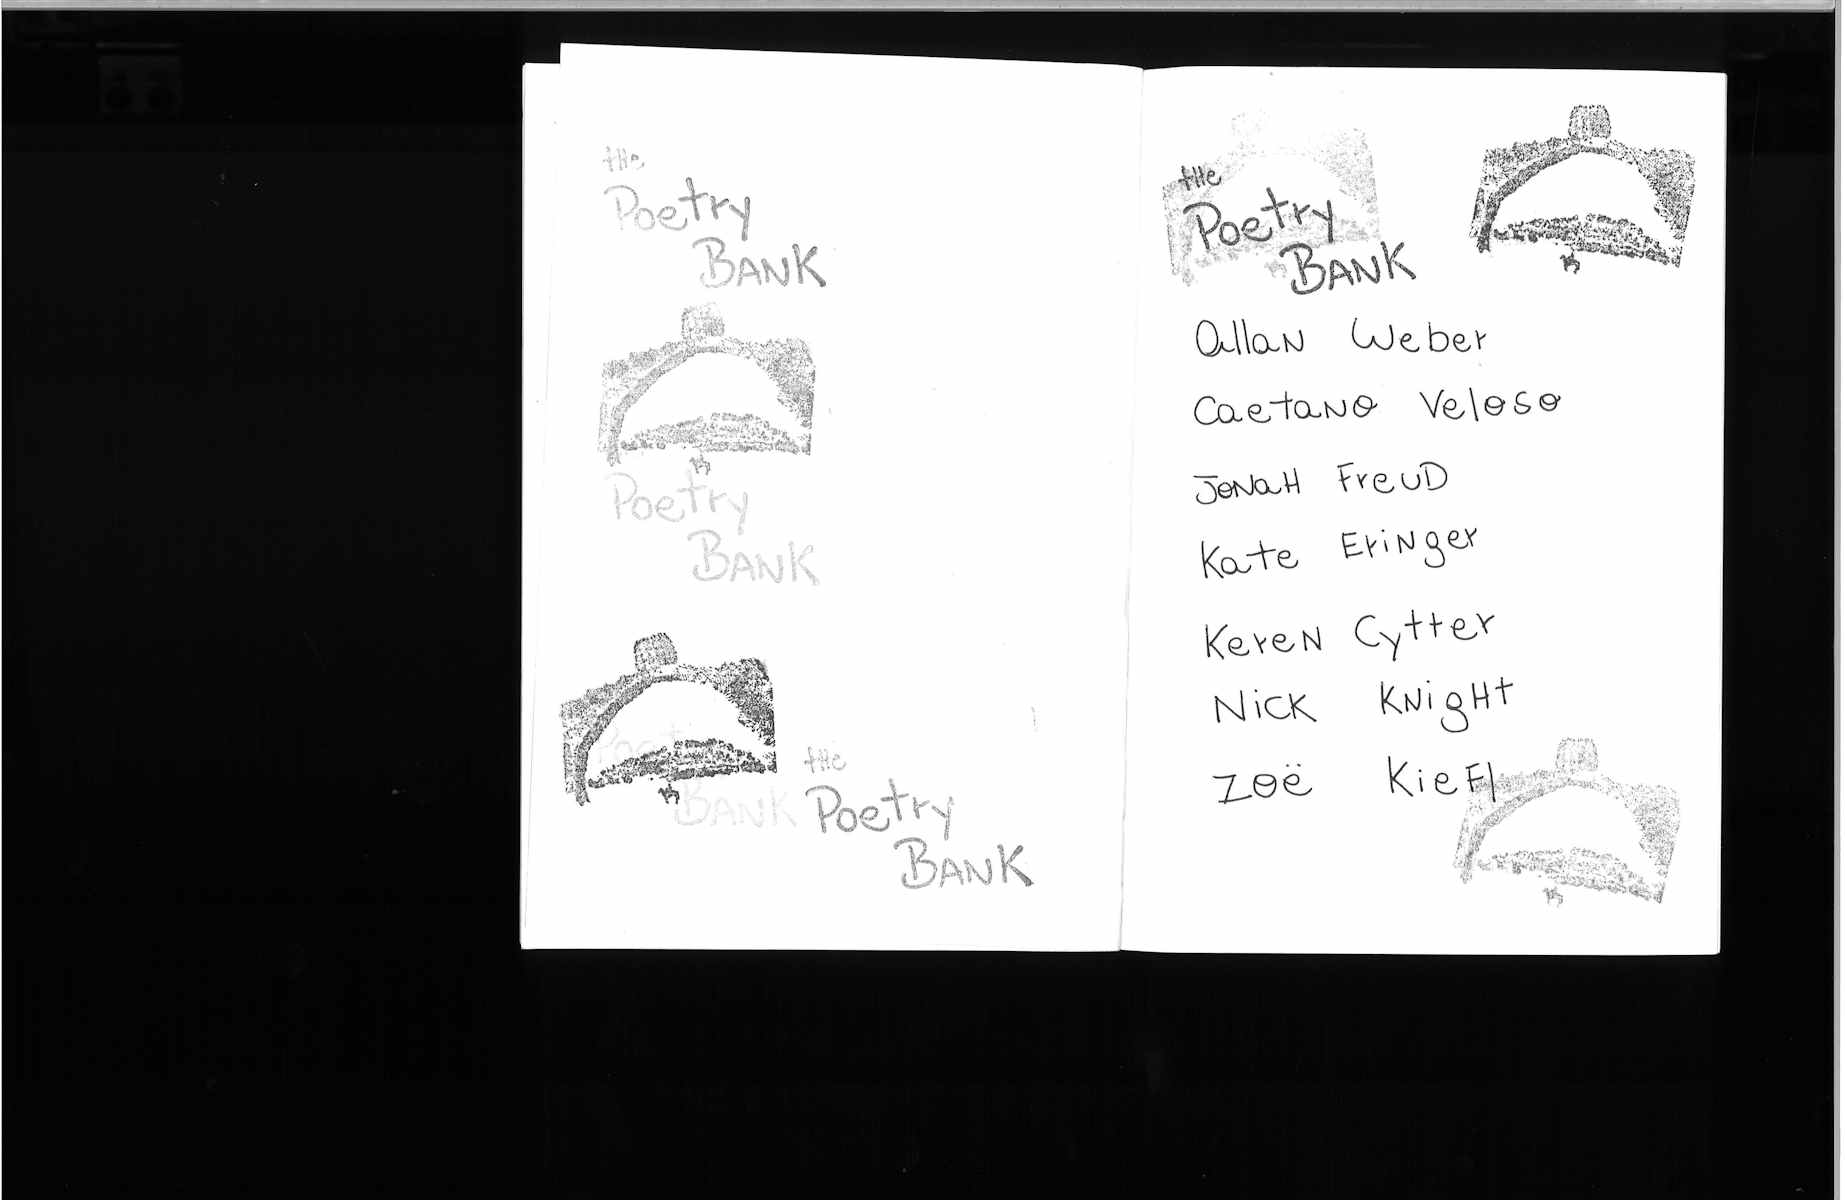 tHe
Poetry
BANK
Poetry
BANK
Poet
BANK
tHe
Poetry
BANK
tHe
Poetry
BANK
Allan Weber
Caetano Veloso
Jonah Freud
Kate Eringer
Keren Cytter
Nick Knight
Zoë